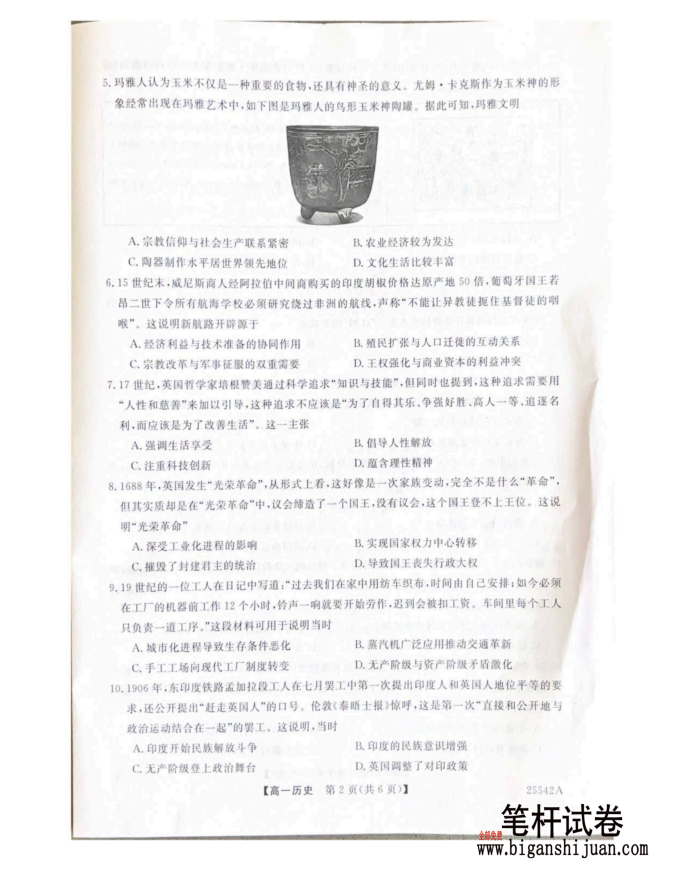 5.玛雅人认为玉米不仅是一种重要的食物,还具有神圣的意义。尤姆·卡克斯作为玉米神的形
象经常出现在玛雅艺术中,如下图是玛雅人的鸟形玉米神陶罐。据此可知,玛雅文明
A.宗教信仰与社会生产联系紧密 B.农业经济较为发达
C.陶器制作水平居世界领先地位 D.文化生活比较丰富
6.15世纪末,威尼斯商人经阿拉伯中间商购买的印度胡椒价格达原产地50倍,葡萄牙国王若
昂二世下令所有航海学校必须研究绕过非洲的航线,声称“不能让异教徒扼住基督徒的咽
喉”。这说明新航路开辟源于
A.经济利益与技术准备的协同作用 B.殖民扩张与人口迁徙的互动关系
C.宗教改革与军事征服的双重需要 D.王权强化与商业资本的利益冲突
7.17世纪,英国哲学家培根赞美通过科学追求“知识与技能”,但同时也提到,这种追求需要用
“人性和慈善”来加以引导,这种追求不应该是“为了自得其乐、争强好胜、高人一等、追逐名
利,而应该是为了改善生活”。这一主张
A.强调生活享受 B.倡导人性解放
C.注重科技创新 D.蕴含理性精神
8.1688年,英国发生“光荣革命”,从形式上看,这好像是一次家族变动,完全不是什么“革命”,
但其实质却是在“光荣革命”中,议会缔造了一个国王,没有议会,这个国王登不上王位。这说
明“光荣革命”
A.深受工业化进程的影响 B.实现国家权力中心转移
C.摧毁了封建君主的统治 D.导致国王丧失行政大权
9.19世纪的一位工人在日记中写道:“过去我们在家中用纺车织布,时间由自己安排;如今必须
在工厂的机器前工作12个小时,铃声一响就要开始劳作,迟到会被扣工资。车间里每个工人
只负责一道工序。”这段材料可用于说明当时
A.城市化进程导致生存条件恶化 B.蒸汽机广泛应用推动交通革新
C.手工工场向现代工厂制度转变 D.无产阶级与资产阶级矛盾激化
10.1906年,东印度铁路孟加拉段工人在七月罢工中第一次提出印度人和英国人地位平等的要
求,还公开提出“赶走英国人”的口号。伦敦《泰晤士报》惊呼,这是第一次“直接和公开地与
政治运动结合在一起”的罢工。这说明,当时
A.印度开始民族解放斗争 B.印度的民族意识增强
C.无产阶级登上政治舞台 D.英国调整了对印政策
【高一历史 第2页(共6页)】 25542A
全部免费 笔杆试卷
www.biganshijuan.com